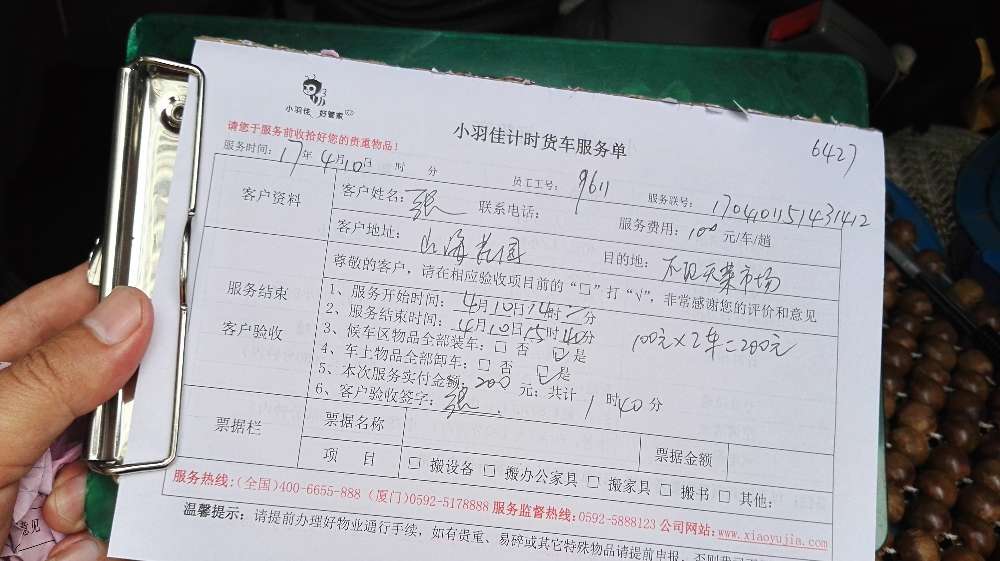 小羽佳 好管家
小羽佳计时货车服务单
6427
请您于服务前收拾好您的贵重物品!
服务时间: 17年4月10日 时 分 员工工号: 9611 服务联号: 170401151431412
客户资料 客户姓名: 张 联系电话: 服务费用: 100元/车/趟
客户地址: 山海花园 目的地: 不见天菜市场
服务结束
客户验收
尊敬的客户,请在相应验收项目前的“□”打“√”,非常感谢您的评价和意见
1、服务开始时间: 4月10日14时 分
2、服务结束时间: 4月10日15时40分
100元×2车=200元
3、候车区物品全部装车:□ 否 ☑是
4、车上物品全部卸车:□ 否 ☑是
5、本次服务实付金额: 200 元; 共计 1 时40分
6、客户验收签字: 张
票据栏 票据名称 票据金额
项 目 □ 搬设备 □ 搬办公家具 □ 搬家具 □ 搬书 □ 其他:
服务热线:(全国)400-6655-888 (厦门)0592-5178888 服务监督热线:0592-5888123 公司网站:www.xiaoyujia.com
温馨提示: 请提前办理好物业通行手续, 如有贵重、易碎或其它特殊物品请提前申报,
意见